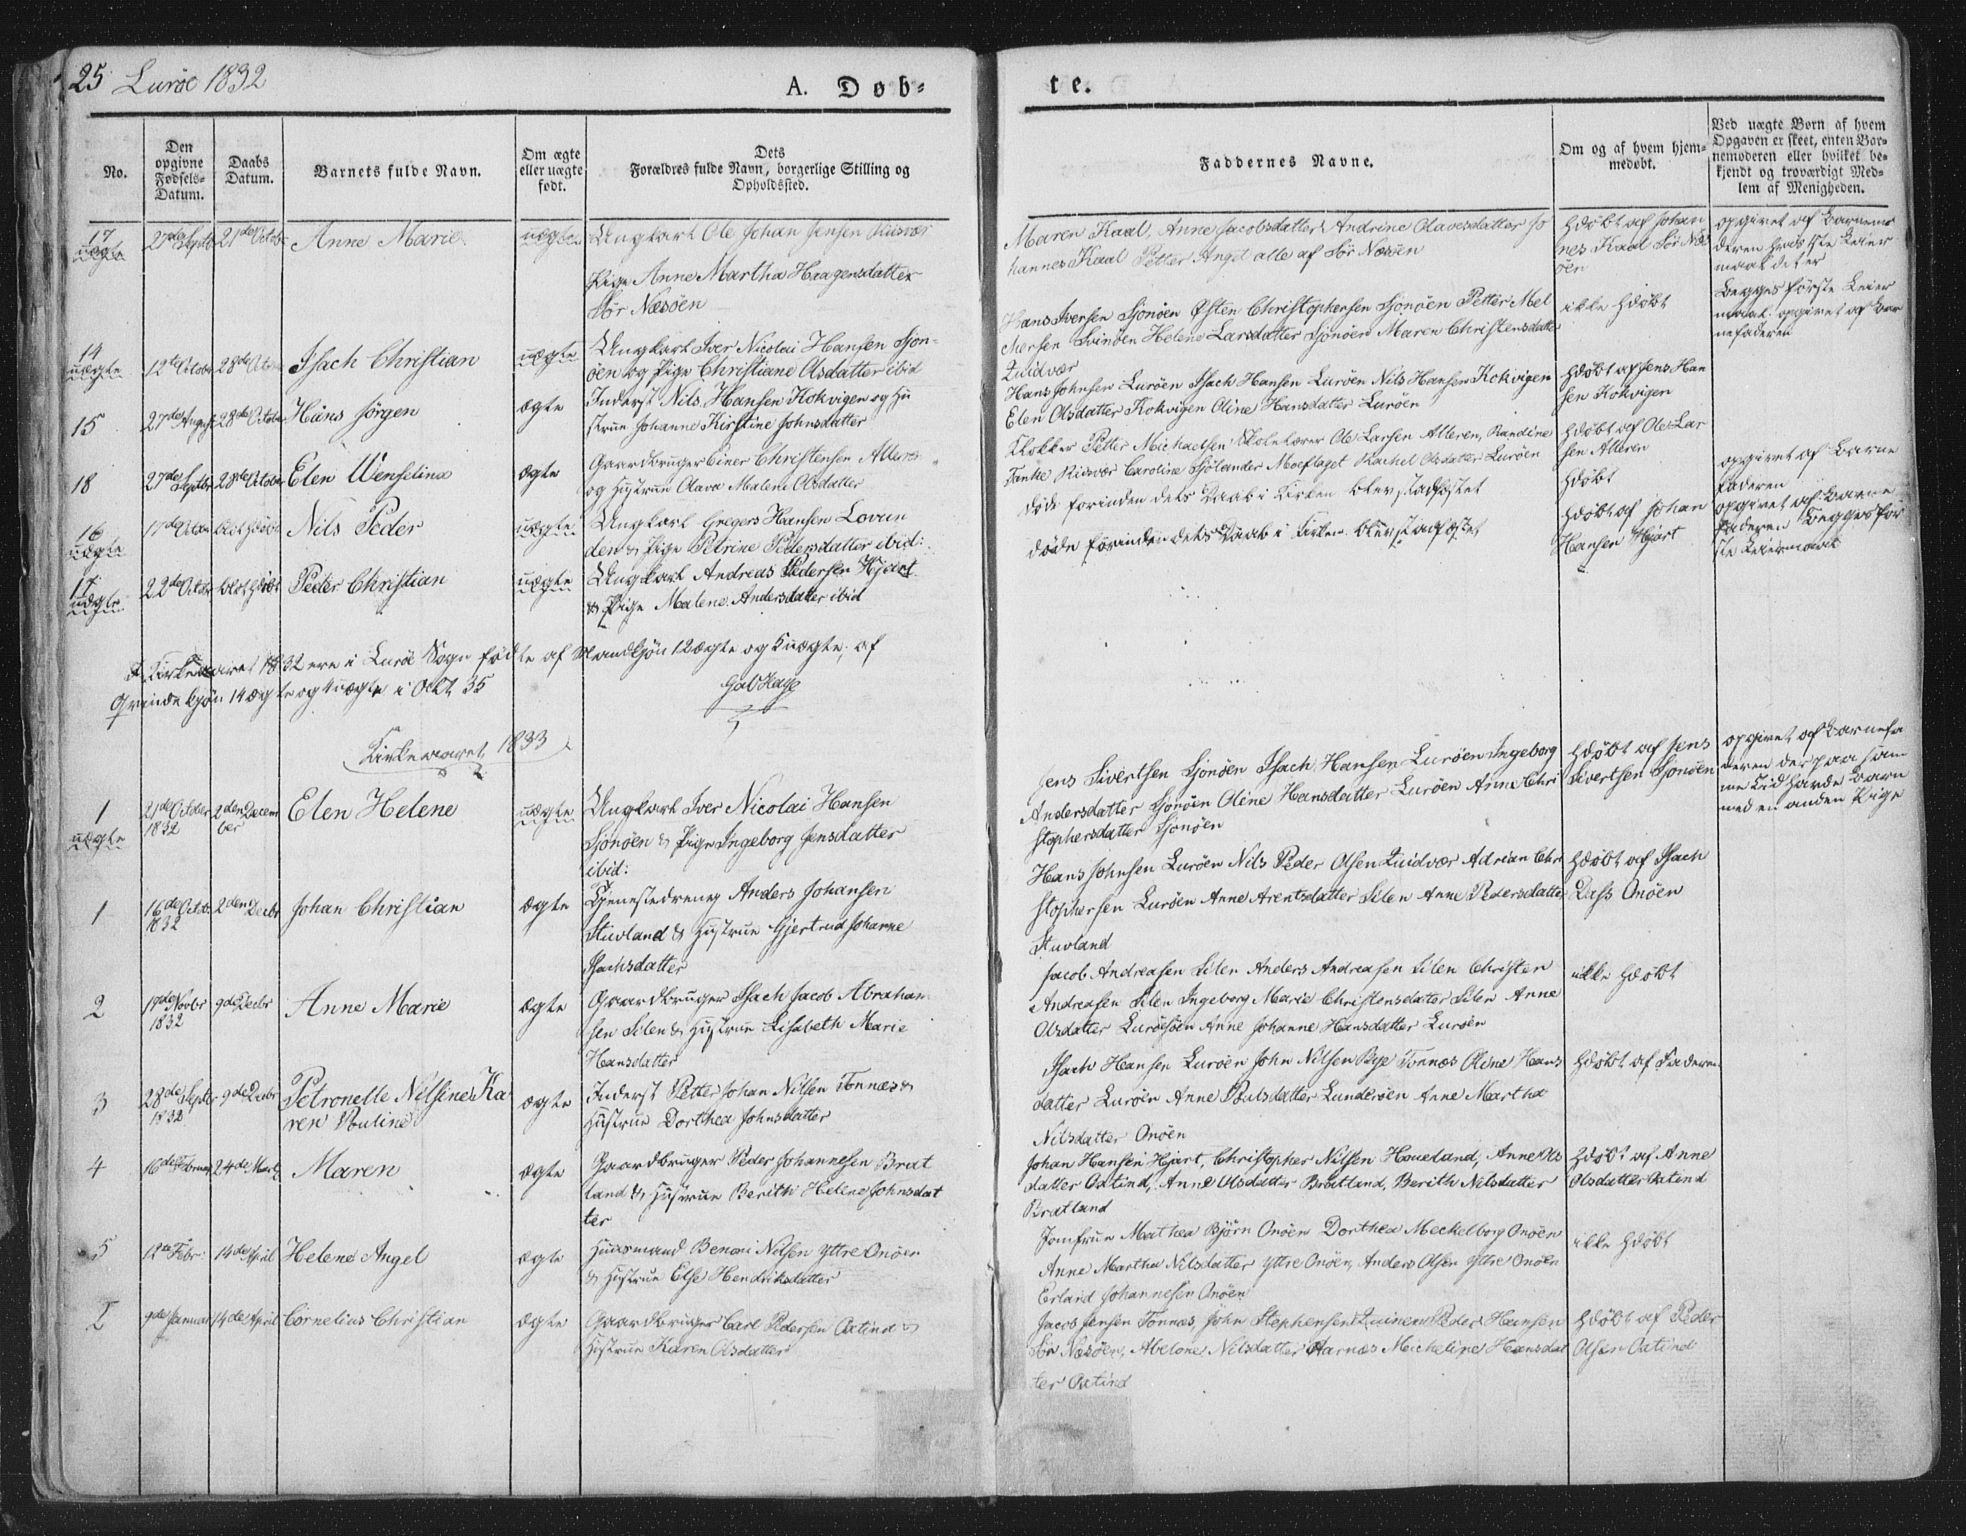 25 Lurøe 1832
A. Døb-
te.
No.
Den opgivne Fødsels-Datum.
Daabs Datum.
Barnets fulde Navn.
Om ægte eller uægte født.
Dets Forældres fulde Navn, borgerlige Stilling og Opholdssted.
Faddernes Navne.
Om og af hvem hjem-medøbt.
Ved uægte Børn af hvem Opgaven er skeet, enten Bar-nemoderen eller hvilket be-kjendt og troværdigt Med-lem af Menigheden.
17 uægte
Anne Marie
uægte
Ungkarl Ole Johan Jensen Risvær
Pige Anne Martha Haagensdatter
Sør Næsöen
Maren Kaal, Anne Jacobsdatter Andrine Olavesdatter Jo
hannes Kaal Petter Angel alle af Sør Næsöen
Hdøbt af Johan
nes Kaal Sør Næs
öen
opgivet af Barnemo
deren
14 uægte
12te Octobr 28de Octo
Isach Christian
uægte
Ungkarl Iver Nicolai Hansen Sjon-
öen og Pige Christiane Olsdatter ibid
Hans Iversen Sjonöen Østen Christophersen Sjonöen Petter Mel
chersen Svinöen Helene Larsdatter Sjonöen Maren Christensdatter
Quidvær
ikke Hdøbt
Begges første Leier
maal opgivet af Bar
nefaderen
15
27de August 28de Octobr
Hans Jörgen
ægte
Inderst Nils Hansen Kokvigen og Hu
strue Johanne Kirstine Johnsdatter
Hans Johnsen Luröen Isach Hansen Luröen Nils Hansen Kokvigen
Elen Olsdatter Kokvigen Oline Hansdatter Luröen
Hdøbt af Jens Han
sen Kokvigen
18
27de Septbr 28de Octobr
Elen Wenselina
ægte
Gaardbruger Einer Christensen Alteren
og Hustrue Olava Malene Olsdatter
Klokker Petter Michaelsen Skolelærer Ole Larsen Alteren, Randine
Fanke Risvær Caroline Sjölander Moeflaget Rachel Olsdatter Luröen
Hdøbt af Ole Lar
sen Alteren
16 uægte
17de Octobr blot Hdøbt
Nils Peder
uægte
Ungkarl Gregers Hansen Lovun
den & Pige Petrine Pedersdatter ibid:
döde forinden dets Daab i Kirken blev stadfæstet
Hdøbt
opgivet af Barne
faderen
17 uægte
22de Octobr blot Hdöbt
Peder Christian
uægte
Ungkarl Andreas Pedersen Hjart
& Pige Malene Andersdatter ibid
döde forinden dets Daab i Kirken blev stadfæstet
Hdøbt af Johan
Hansen Hjart
opgivet af Barne
faderen Begges før
ste Leiermaal
I Kirkeaaret 1832 ere i Luröe Sogn födte af Mandkjön 12 ægte og 5 uægte, af
Qvindekjön 14 ægte og 4 uægte i Alt 35
Kirkeaaret 1833
1 uægte
21de October 1832 2den Decem
ber
Elen Helene
uægte
Ungkarl Iver Nicolai Hansen
Sjonöen & Pige Ingeborg Jensdatter
ibid:
Jens Sivertsen Sjonöen Isach Hansen Luröen Ingeborg
Andersdatter Sjonöen Oline Hansdatter Luröen Anne Chri
stophersdatter Sjonöen
Hdøbt af Jens
Sivertsen Sjonöen
opgivet af Barnefa
deren der paa sam
me Tid havde Barn
med en anden Pige
1
16de Octob. 1832 2den Decbr
Johan Christian
ægte
Tjenestedreng Anders Johansen
Stuvland & Hustrue Gjertrud Johanne
Isachsdatter
Hans Johnsen Luröen Nils Peder Olsen Quidvær Adrian Chri
stophersen Luröen Anne Arentsdatter Silen Anne Pedersdatter
Stuvland
Hdøbt af Isach
Dass Onöen
2
17de Novbr 1832 9de Decbr
Anne Marie
ægte
Gaardbruger Isach Jacob Abraham
sen Silen & Hustrue Lisabeth Marie
Hansdatter
Jacob Andreasen Silen Anders Andreasen Silen Christen
Andreasen Silen Ingeborg Marie Christensdatter Silen Anne
Olsdatter Luröesöen Anne Johanne Hansdatter Luröen
ikke Hdøbt
3
29de Septbr 1832 9de Decbr
Petronelle Nilsine Ka
ren Pouline
ægte
Inderst Petter Johan Nilsen Tonnes &
Hustrue Dorthea Johnsdatter
Isach Hansen Luröen John Nilsen Bye Tonnes Oline Hans
datter Luröen Anne Poulsdatter Lunderöen Anne Martha
Nilsdatter Onöen
Hdøbt af Faderen
4
16de Februar 24de Marts
Maren
ægte
Gaardbruger Peder Johannesen Brat
land & Hustrue Berith Helene Johnsdat
ter
Johan Hansen Hjart, Christopher Nilsen Haueland, Anne Ols
datter Oxtind, Anne Olsdatter Bratland, Berith Nilsdatter
Bratland
Hdøbt af Anne
Olsdatter Oxtind
5
12te Febr: 14de April
Helene Angel
ægte
Huusmand Benoni Nilsen Yttre Onöen
& Hustrue Else Hendriksdatter
Jomfrue Mathea Björn Onöen Dorthea Meckelborg Onöen
Anne Martha Nilsdatter Yttre Onöen, Anders Olsen Yttre Onöen
Erland Johannesen Onöen
ikke Hdøbt
2
9de Januar 14de April
Cornelius Christian
ægte
Gaardbruger Carl Pedersen Oxtind &
Hustrue Karen Olsdatter
Jacob Jensen Tonnes, John Stephensen Peder Hansen
Sör Næsöen, Abelone Nilsdatter Micheline Hansdat
ter Oxtind
Hdøbt af Peder
Olsen Oxtind